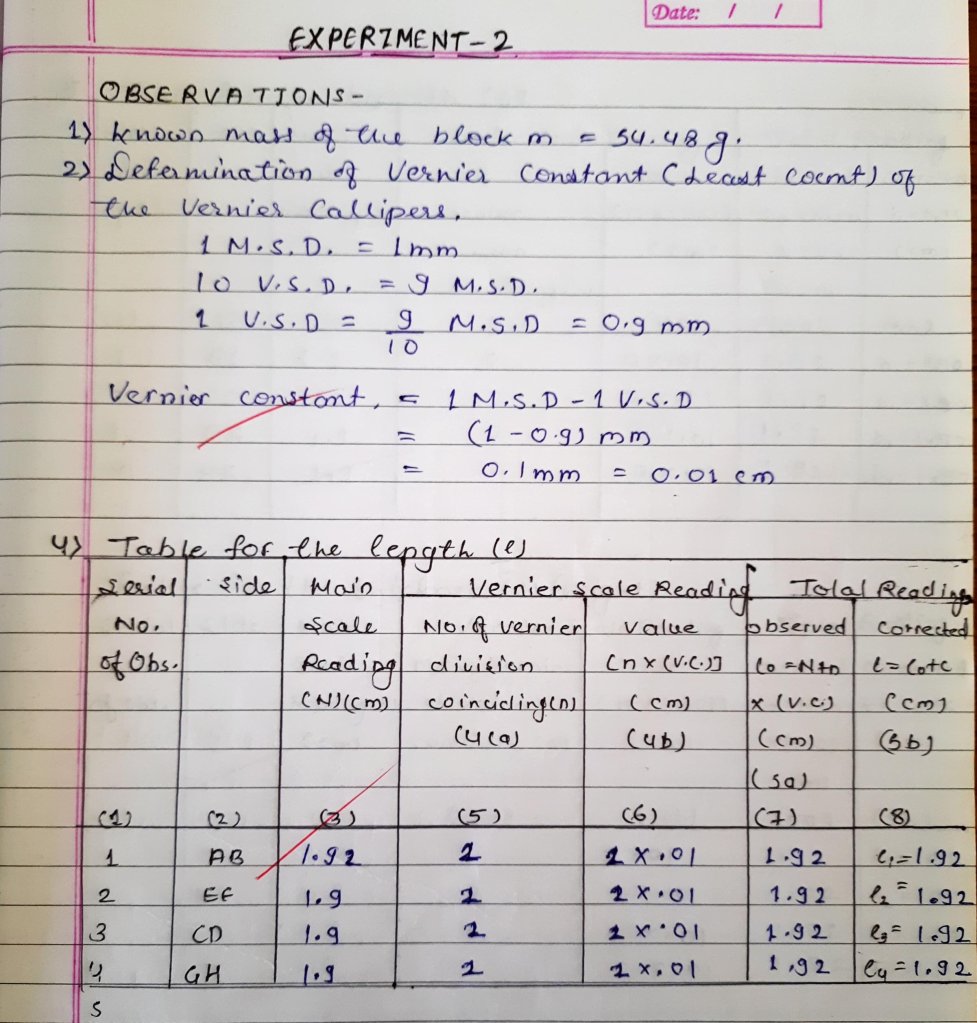 Date: / /
EXPERIMENT-2
OBSERVATIONS-
1) Known mass of the block m = 54.48 g.
2) Determination of Vernier Constant (Least Count) of
the Vernier Callipers.
1 M.S.D. = 1mm
10 V.S.D. = 9 M.S.D.
1 V.S.D = 9/10 M.S.D = 0.9 mm
Vernier constant, = 1 M.S.D - 1 V.S.D
= (1 - 0.9) mm
= 0.1mm = 0.01 cm
4) Table for the length (l)
Serial Side Main Vernier Scale Reading Total Reading
No. Scale No. of vernier value observed corrected
of Obs. Reading division [n x (V.C.)] lo = N+n l = lo+c
(N)(cm) coinciding(n) (cm) x (V.C.) (cm)
(4(a) (4b) (cm) (5b)
(5a)
(1) (2) (3) (5) (6) (7) (8)
1 AB 1.92 2 2 x .01 1.92 l1=1.92
2 EF 1.9 2 2 x .01 1.92 l2=1.92
3 CD 1.9 2 2 x .01 1.92 l3=1.92
4 GH 1.9 2 2 x .01 1.92 l4=1.92
5